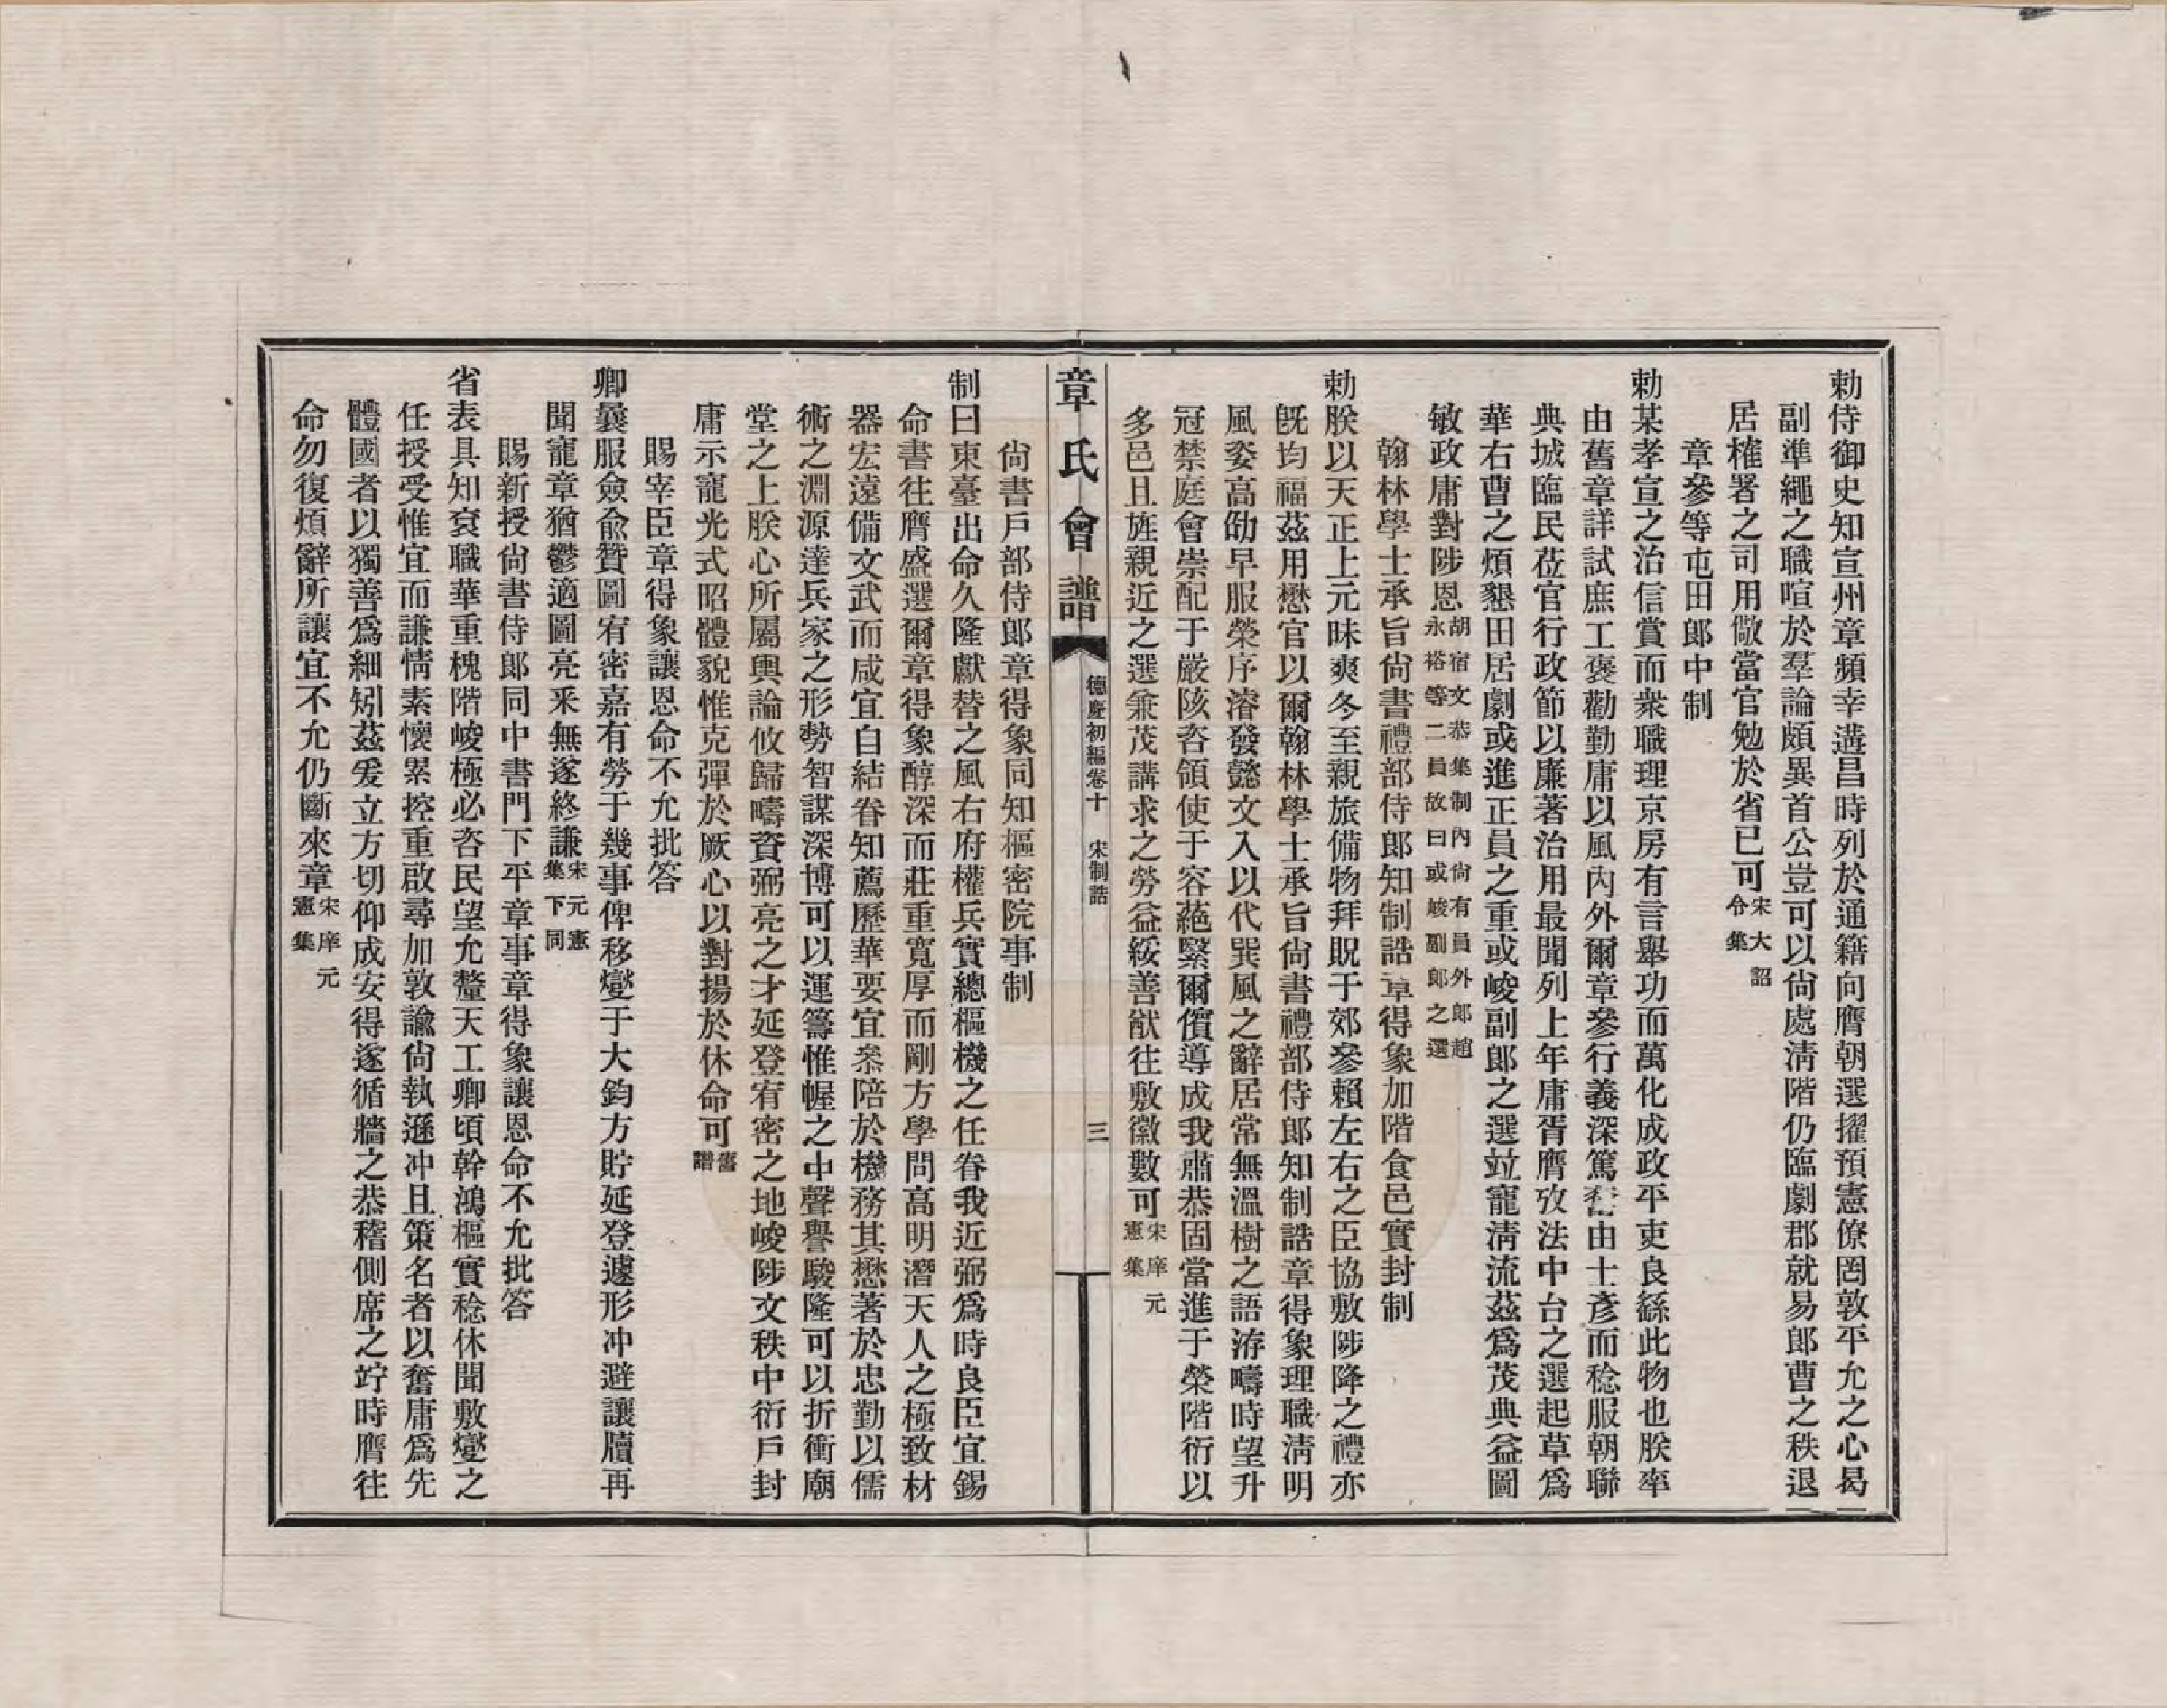 勅侍御史知宣州章頻幸遘昌時列於通籍向膺朝選擢預憲僚罔敦平允之心曷
副準繩之職喧於羣論頗異首公豈可以尙處淸階仍臨劇郡就易郎曹之秩退
居榷署之司用儆當官勉於省已可宋大詔令集
章參等屯田郎中制
勅某孝宣之治信賞而衆職理京房有言舉功而萬化成政平吏良繇此物也朕率
由舊章詳試庶工褒勸勤庸以風內外爾章參行義深篤由士彥而稔服朝聯
典城臨民莅官行政節以廉著治用最聞列上年庸胥膺攷法中台之選起草爲
華右曹之煩懇田居劇或進正員之重或峻副郎之選竝寵淸流茲爲茂典益圖
敏政庸對陟恩胡宿文恭集制內尙有員外郎趙永裕等二員故曰或峻副郎之選
翰林學士承旨尙書禮部侍郎知制誥章得象加階食邑實封制
勅朕以天正上元昧爽冬至親旅備物拜貺于郊參賴左右之臣協敷陟降之禮亦
旣均福茲用懋官以爾翰林學士承旨尙書禮部侍郎知制誥章得象理職淸明
風姿高劭早服榮序濬發懿文入以代巽風之辭居常無溫樹之語洊疇時望升
冠禁庭會崇配于嚴陔咨領使于容蕝緊爾儐導成我肅恭固當進于榮階衍以
多邑且旌親近之選兼茂講求之勞益綏善猷往敷徽數可宋庠元憲集
章氏會譜
德慶初編卷十 宋制誥
三
尙書戶部侍郎章得象同知樞密院事制
制曰東臺出命久隆獻替之風右府權兵實總樞機之任眷我近弼爲時良臣宜錫
命書往膺盛選爾章得象醇深而莊重寬厚而剛方學問高明潛天人之極致材
器宏遠備文武而咸宜自結眷知薦歷華要宜叅陪於機務其懋著於忠勤以儒
術之淵源達兵家之形勢智謀深博可以運籌惟幄之中聲譽駿隆可以折衝廟
堂之上朕心所屬輿論攸歸疇資弼亮之才延登宥密之地峻陟文秩中衍戶封
庸示寵光式昭體貌惟克彈於厥心以對揚於休命可舊譜
賜宰臣章得象讓恩命不允批答
卿曩服僉兪贊圖宥密嘉有勞于幾事俾移燮于大鈞方貯延登遽形冲避讓牘再
聞寵章猶鬱適圖亮采無遂終謙宋元憲集下同
賜新授尙書侍郎同中書門下平章事章得象讓恩命不允批答
省表具知袞職華重槐階峻極必咨民望允釐天工卿頃幹鴻樞實稔休聞敷燮之
任授受惟宜而謙情素懷累控重啟尋加敦諭尙執遜冲且策名者以奮庸爲先
體國者以獨善爲細矧茲爰立方切仰成安得遂循牆之恭稽側席之竚時膺往
命勿復煩辭所讓宜不允仍斷來章宋庠元憲集